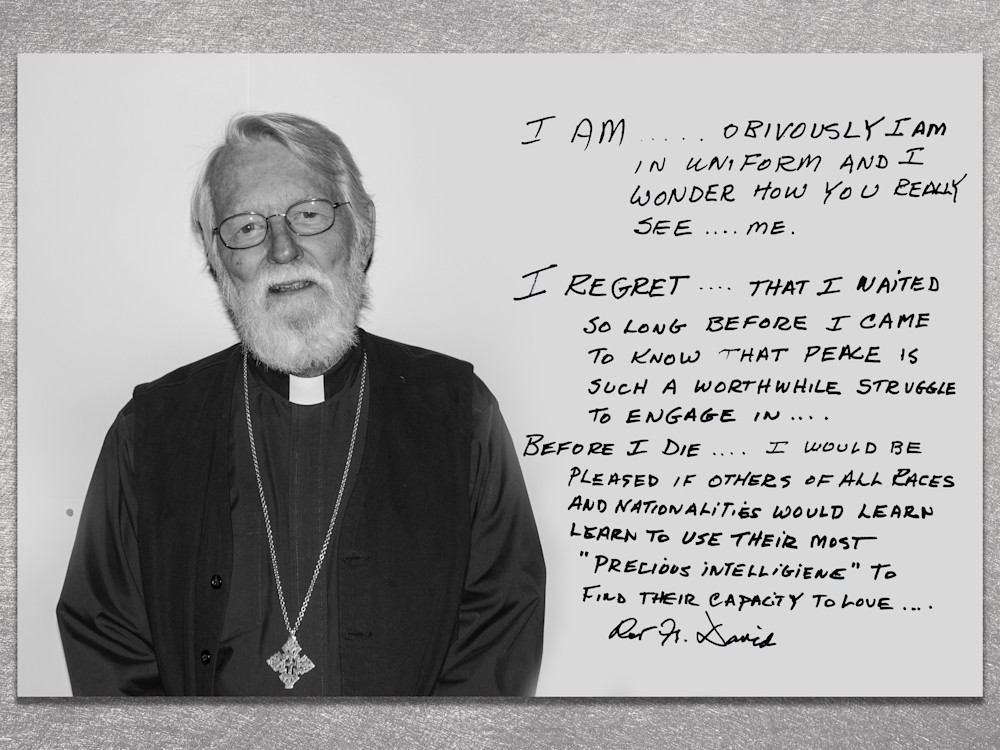 I AM ..... OBIVOUSLY I AM
IN UNIFORM AND I
WONDER HOW YOU REALLY
SEE .... ME.
I REGRET .... THAT I WAITED
SO LONG BEFORE I CAME
TO KNOW THAT PEACE IS
SUCH A WORTHWHILE STRUGGLE
TO ENGAGE IN ....
BEFORE I DIE .... I WOULD BE
PLEASED IF OTHERS OF ALL RACES
AND NATIONALITIES WOULD LEARN
LEARN TO USE THEIR MOST
"PRECIOUS INTELLIGIENE" TO
FIND THEIR CAPACITY TO LOVE ....
Rev Fr. David